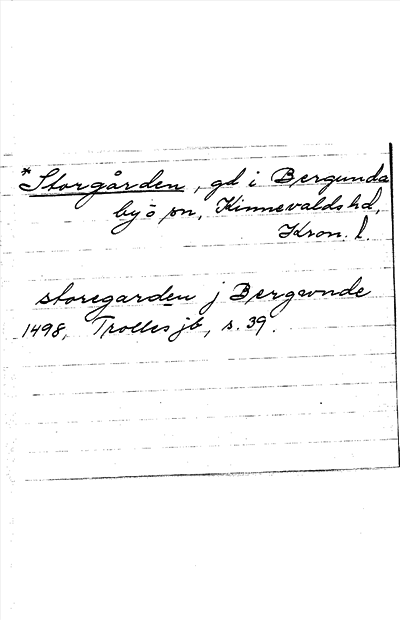 *Storgården, gd i Bergunda
by o sn, Kinnevalds hd,
Kron. l.
storegarden j Bergwnde
1498, Trolles jb, s. 39.